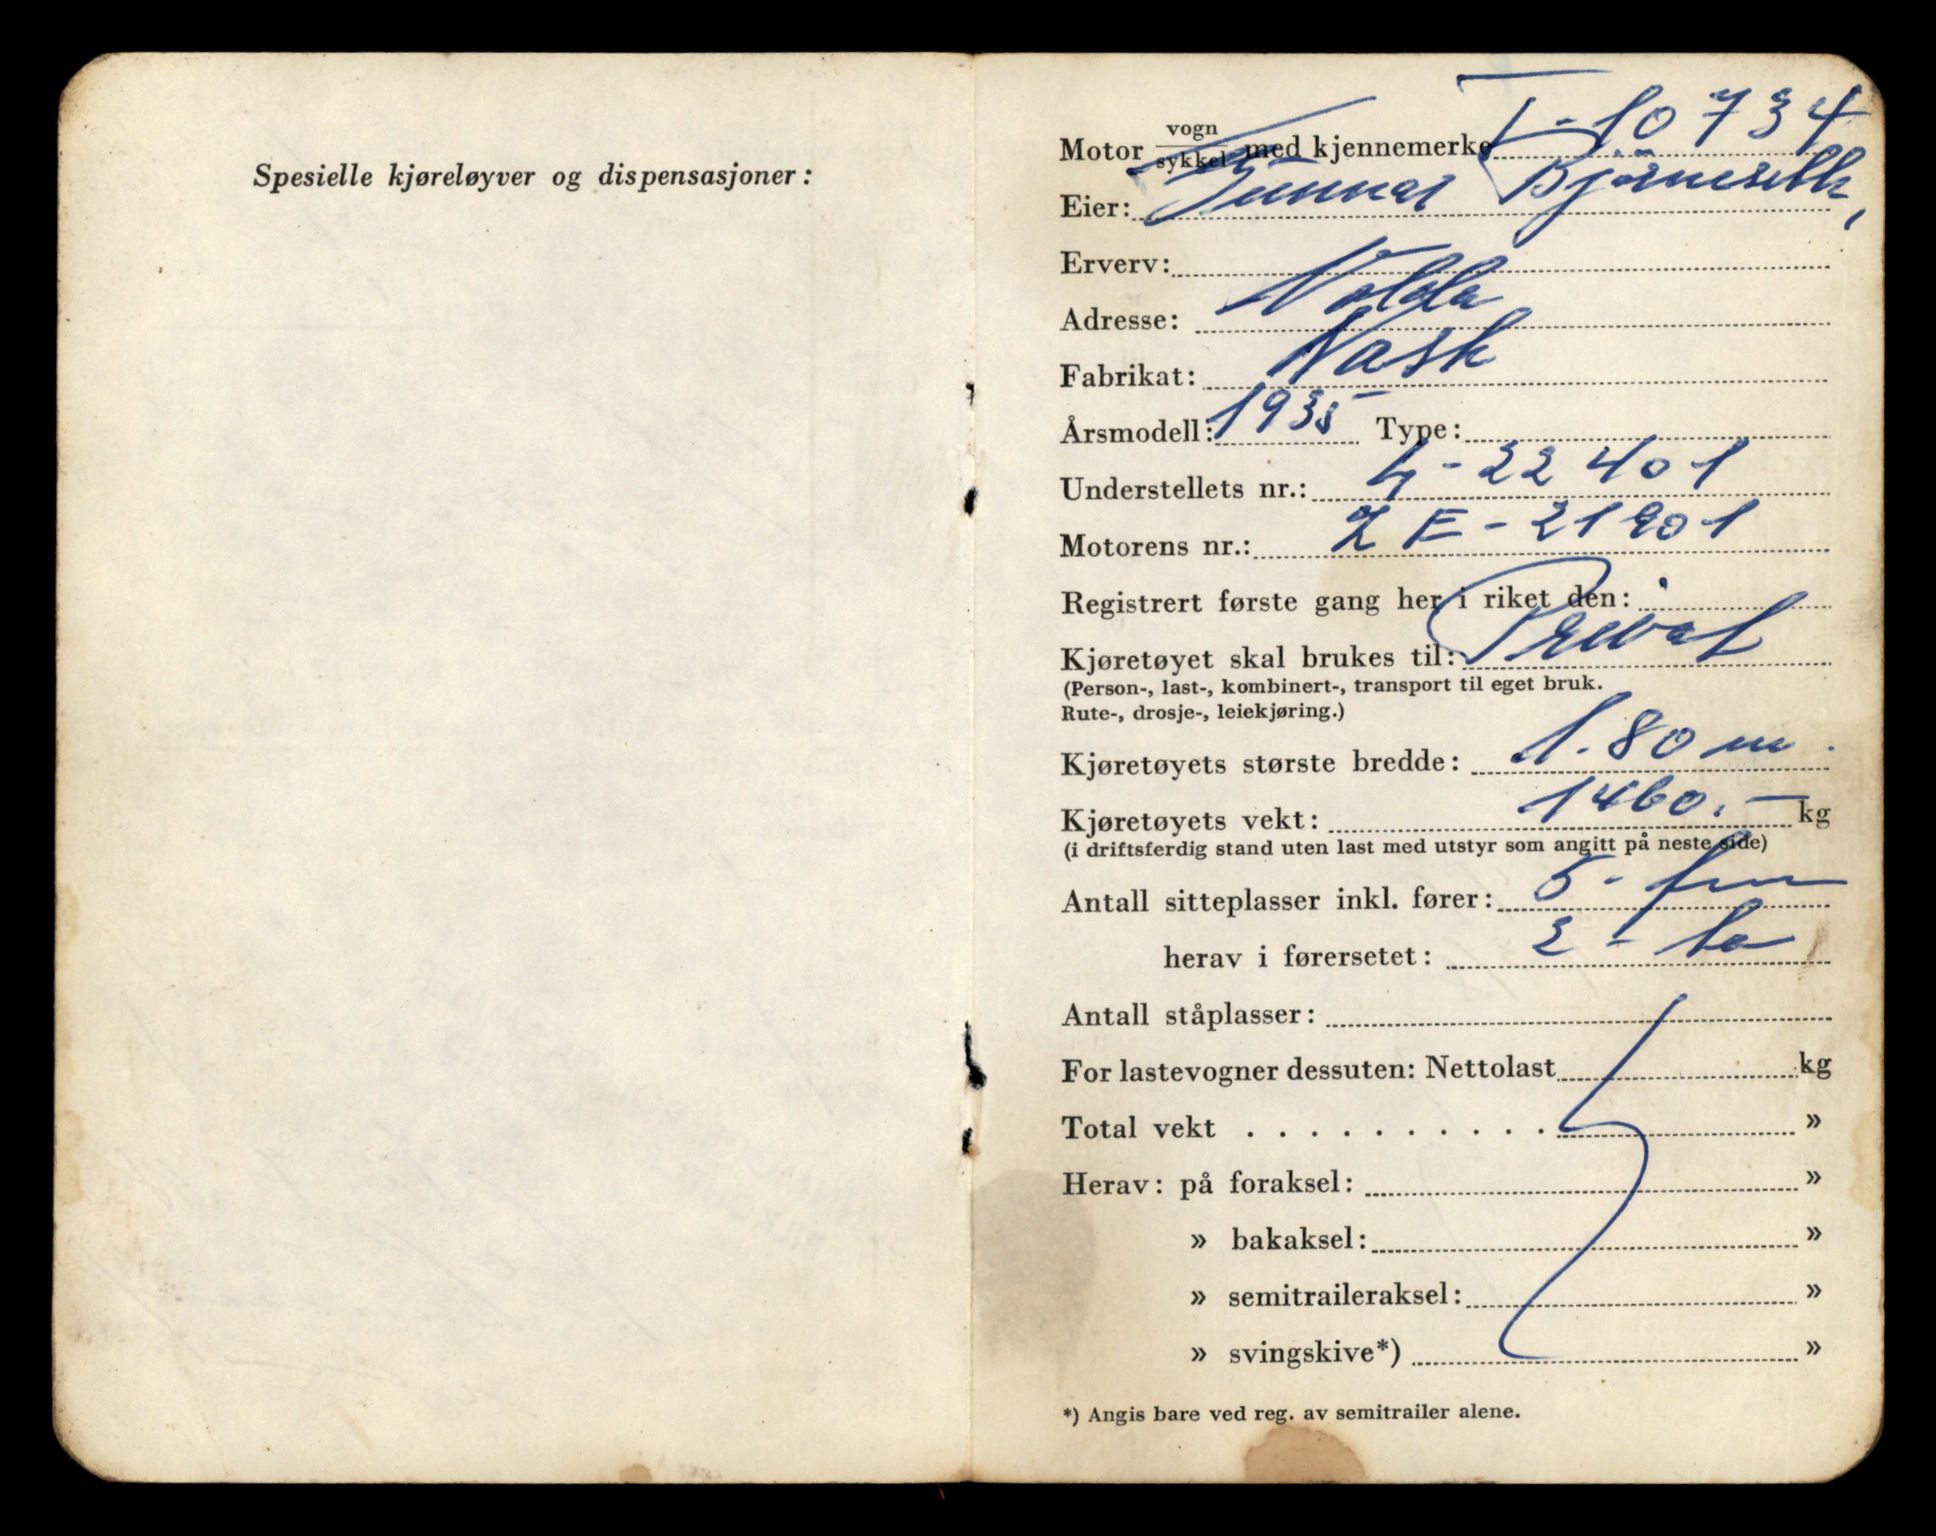 Spesielle kjøreløyver og dispensasjoner:
Motor vogn/sykkel med kjennemerke T-10734
Eier: Gunnar
Erverv:
Adresse: Volda
Fabrikat: Nash
Årsmodell: 1935 Type:
Understellets nr.: L-22401
Motorens nr.: ZE-21901
Registrert første gang her i riket den:
Kjøretøyet skal brukes til: Privat
(Person-, last-, kombinert-, transport til eget bruk.
Rute-, drosje-, leiekjøring.)
Kjøretøyets største bredde: 1.80 m.
Kjøretøyets vekt: 1460.- kg
(i driftsferdig stand uten last med utstyr som angitt på neste side)
Antall sitteplasser inkl. fører: 5 - fem
herav i førersetet: 2 - to
Antall ståplasser:
For lastevogner dessuten: Nettolast kg
Total vekt . . . . . . . . . . »
Herav: på foraksel: »
» bakaksel: »
» semitraileraksel: »
» svingskive*) »
*) Angis bare ved reg. av semitrailer alene.